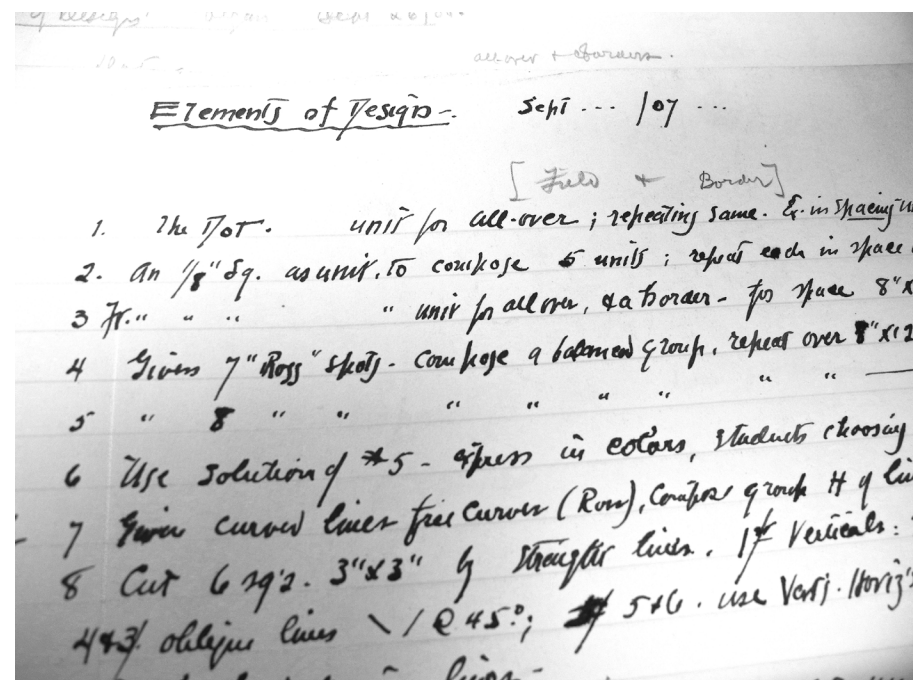 of Design
all-over + Borders.
Elements of Design-. Sept ... /07 ...
[Field + Border]
1. The Dot. unit for all-over ; repeating same. Ex. in spacing
2. An 1/8" Sq. as unit. To compose 5 units ; repeat each in space
3 Fr. " " " " unit for all over, & a border - for space 8"x
4 Given 7 "Ross" spots - compose a balanced group, repeat over 8"x12
5 " 8 " " " " " " " "
6 Use solution of #5 - express in colors, students choosing
7 Given curved lines free curves (Ross), compose group # of
8 Cut 6 sq's. 3"x3" by straight lines. 1st Verticals:
4&3/ oblique lines \ / @ 45°; 5+6. use Vert's. Horiz's
lines -